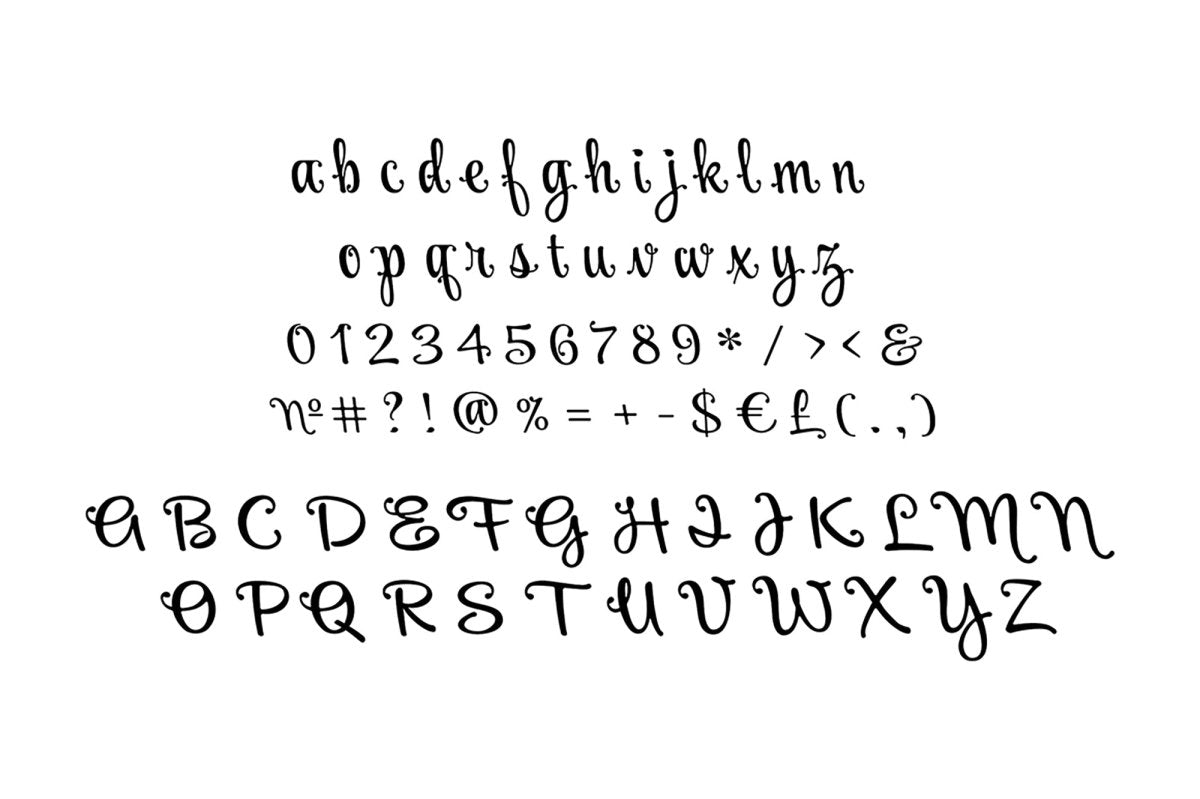 a b c d e f g h i j k l m n
o p q r s t u v w x y z
0 1 2 3 4 5 6 7 8 9 * / > < &
№ # ? ! @ % = + - $ € £ ( . , )
A B C D E F G H I J K L M N
O P Q R S T U V W X Y Z